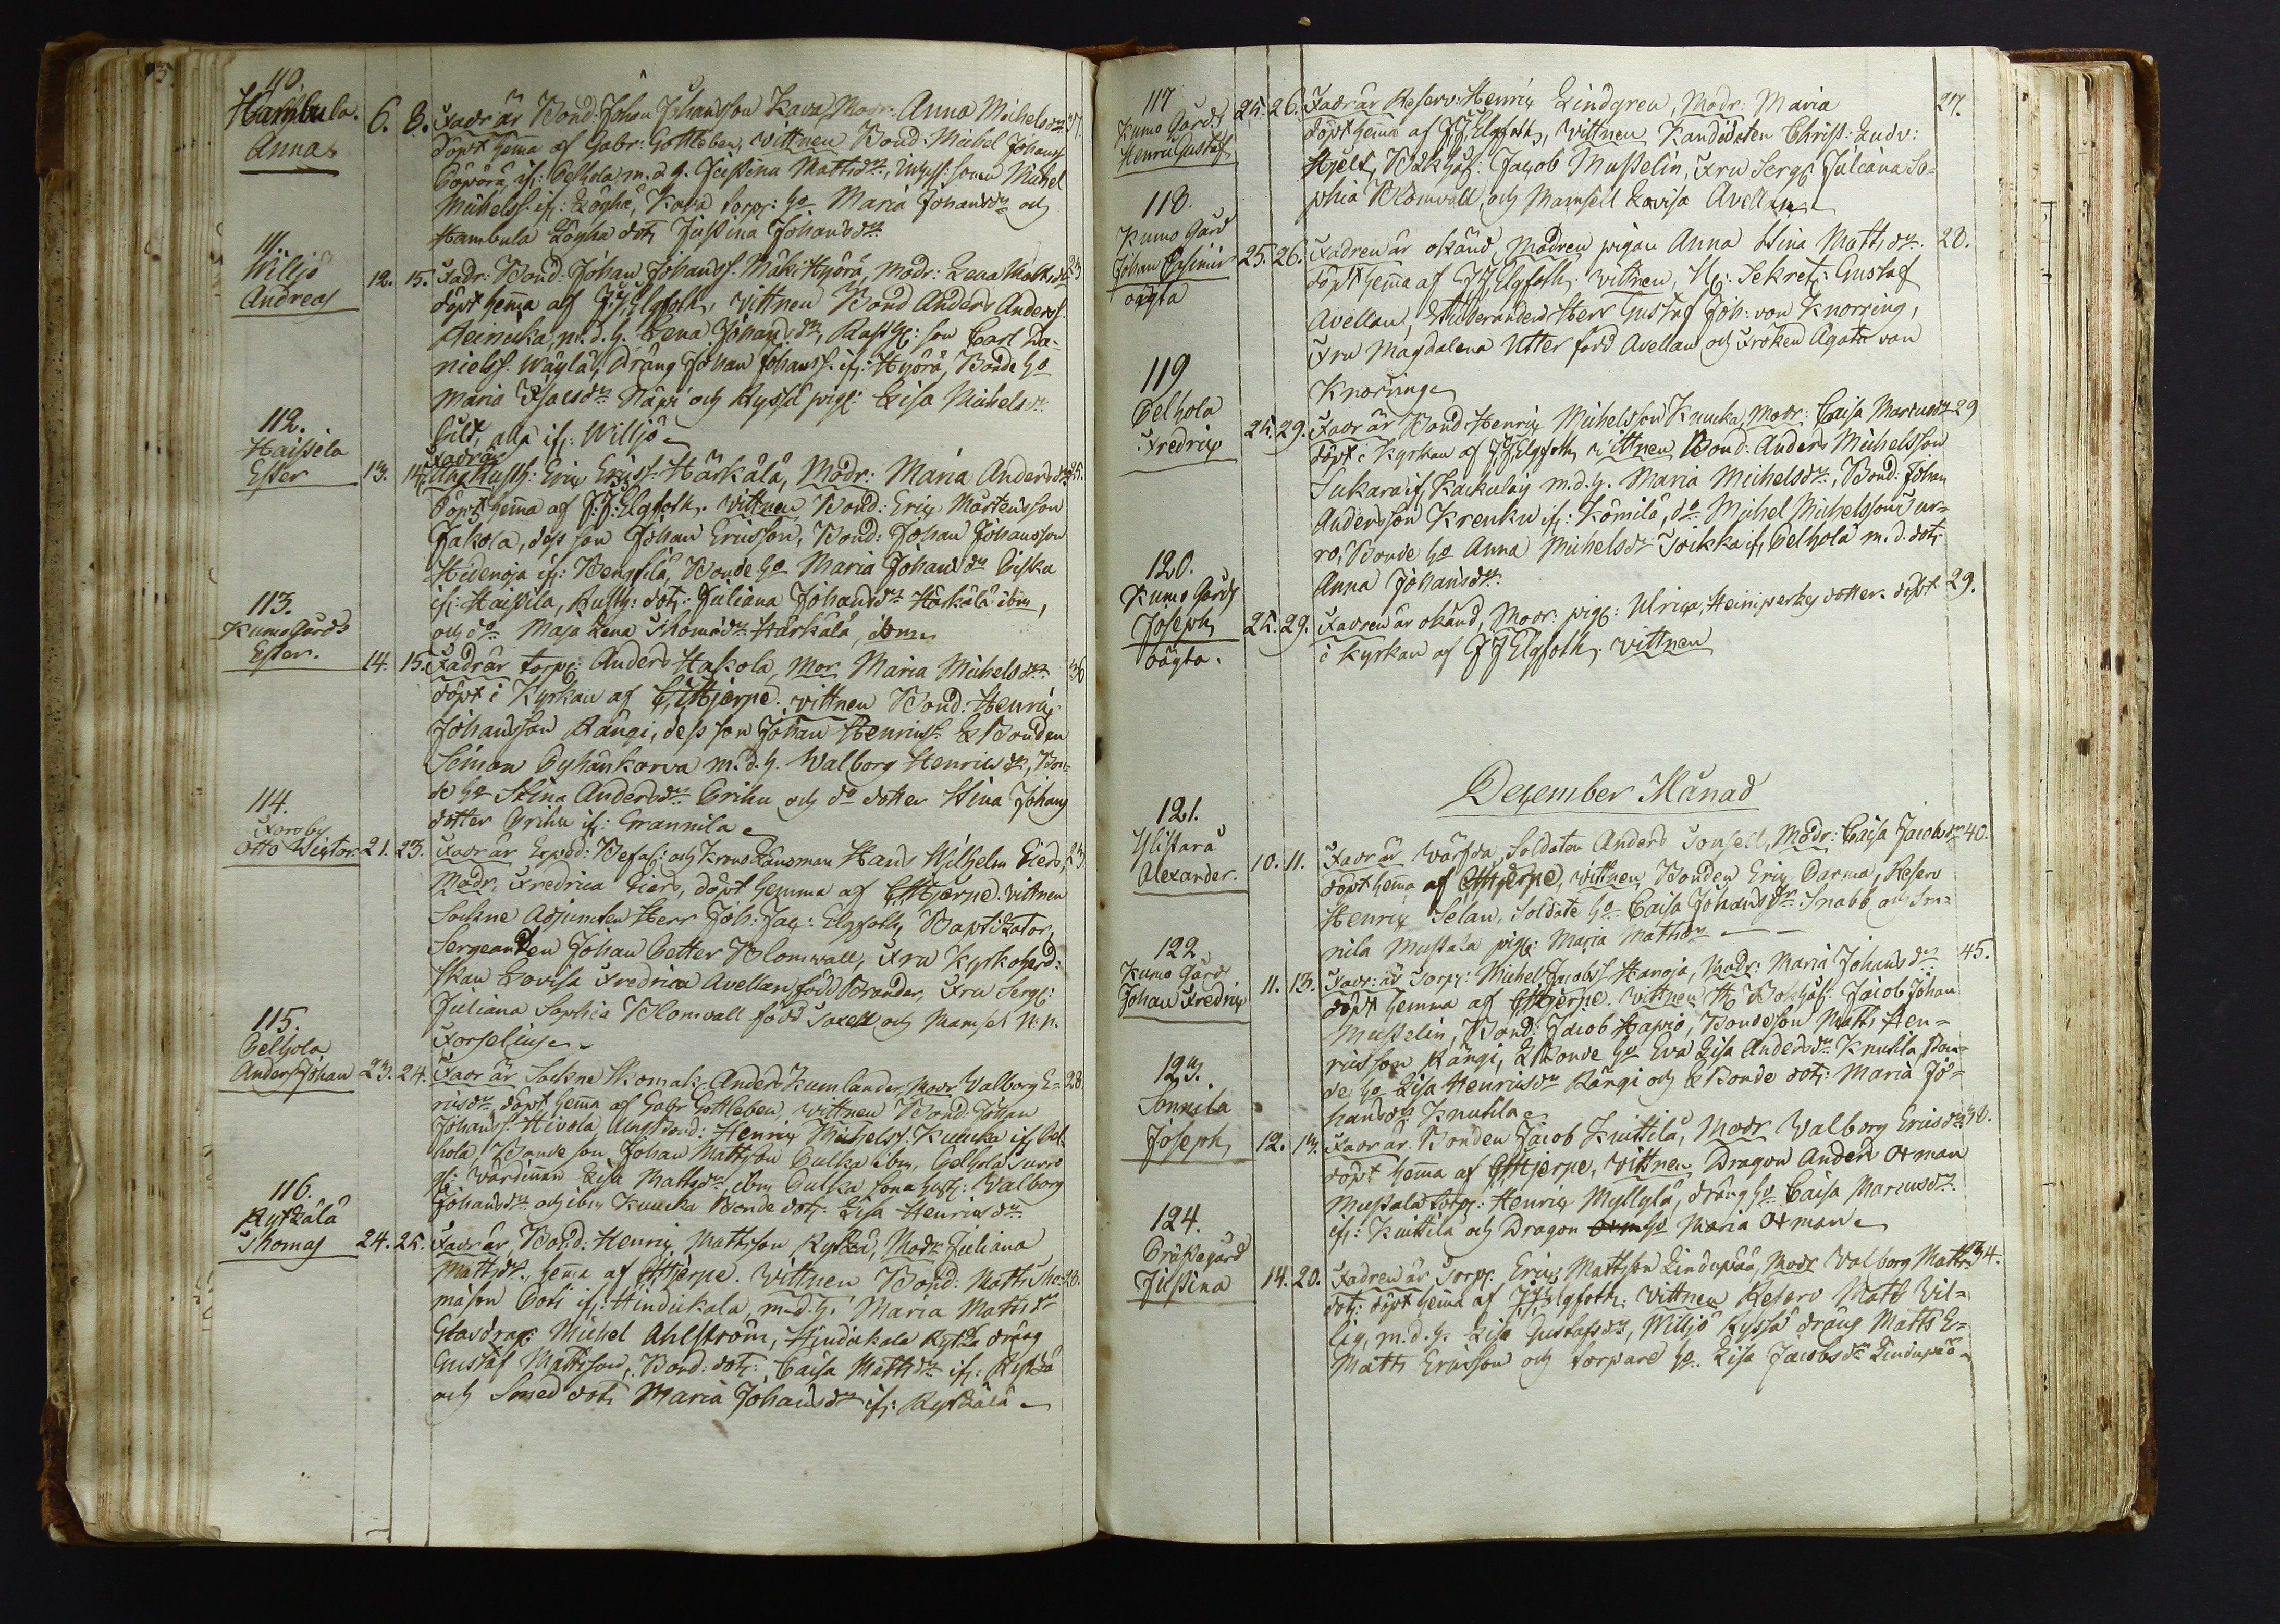 110.
Hambula.
Anna
6. 8. Fadr är Bond: Johan Johansson Kava, Modr: Anna Michelsdr 37.
döpt hema af Gabr: Gottleben, vittnen Bond: Michel Johanss
ifr: Pelhola m. d. h. Justina Mattsdr, Michel
Michelss. ifr: Löyhä, Kava torp: ho Maria Johansdr och
Hambula Löyhä dotr Justina Johansdr
111.
Willjö
Andreas
12. 15. Fadr: Bond: Johan Johanss. Mäki Hyörä, Modr: Lena Mattsdr 23
döpt hema af J: J: Elgfoth, vittnen Bond Anders Anderss.
Heinicka, m. d. h. Lena Johansdr, Rusth: son Carl Da-
nielss. Wäylä, Dräng Johan Johanss. ifr: Hyörä, Bonde ho
Maria Isacsdr Näpi och Ryssä pig: Lisa Michelsdr
alla ifr: Willjö
112.
Haistela
Ester
Fadr är
13. 14. Rusth: Eric Ericss. Härkälä, Modr: Maria Andersdr 25.
Döpt hema af J. J. Elgfoth. vittnen Bond: Eric Mårtensson
Jakola, dess son Johan Ericsson, Bond: Johan Johansson
Hidenoja ifr: Benfilä, Bonde ho Maria Johansdr
ifr: Haistila, Rusth: dotr: Juliana Johansdr Härkälä ibm,
och do Maja Lena Thomasdr Härkälä, ibm
113.
Kumo Gårds
Ester.
14. 15. Fadr är torp: Anders Hakola, Mor Maria Michelsdr 36
döpt i Kyrkan af C. Hjerpe. vittnen Bond: Henric
Johansson Rängi, dess son Johan Henricss. & Bonden
Simon Pyhänkorva m. d. h. Walborg Henricsdr, Bon-
de ho Stina Andersdr Prihu och do dotter Stina Johans
dotter Prihu ifr: Grannila
114.
Forsby
Otto Wictor
21. 23. Fadr är Exped: Befalf: och Krono Länsman Hans Wilhelm Giers, 23
Modr. Fredrica Giers, döpt hemma af C. Hjerpe. vittnen
Sockne Adjuncten Herr Joh: Jac: Elgfoth, Baptizator,
Sergeanten Johan Petter Blomvall, Fru Kyrkoherd:
skan Lovisa Fredrica Avellan född Brander, Fru Serg:
Juliana Sophia Blomvall född Saxell och Mamsel N: N.
Forselius
115.
Pelhola
Anders Johan
23. 24. Fadr är Sockne Skomak. Anders Kumlander, Modr Walborg E- 28
ricsdr, döpt hema af Gabr Gottleben, vittnen Bond: Johan
Johanss Hivola, Ung Bond: Henric Michelss. Knucka ifr Pel-
hola, Bonde son Johan Mattsson Pulka ibm, Pelhola
Wärdinnan Lisa Mattsdr ibm Pulka sona hustr: Walborg
Johansdr och ibm Knucka Bonde dotr Lisa Henricsdr
116.
Rytzälä
Thomas
24. 25. Fadr är Bond: Henric Mattsson Rytzä, Modr Juliana
Mattsdr, hema af C. Hjerpe. Vittnen Bond: Matts Tho- 28.
masson ifr: Hindickala, m. d. h. Maria Mattsdr
Michel Ahlström, Hindickala Rytzä dräng
Gustaf Mattsson, Bond: dotr: Caisa Mattsdr ifr: Rytzä
och Smed dotr Maria Johansdr ifr: Rytzälä
117
Kumo Gårds
Henric Gustaf
25. 26. Fadr är Reserv: Henric Lindgren, Modr: Maria 27.
döpt hema af J: J: Elgfoth, vittnen Kandidaten Christ: Ludv:
Hjelt, Bokh: Jacob Musselin, Fru Serg: Juliana So-
phia Blomvall, och Mamsell Lovisa Avellan
118.
Kumo Gård
Johan Casimir
oägta
25. 26. Fadren är okänd, Modren pigan Anna Stina Mattsdr. 28.
döpt hema af J: J: Elgfoth. vittnen, H: Sekret: Gustaf
Avellan, Studeranden Herr Gustaf Joh: von Knorring,
Fru Magdalena Utter född Avellan och Fröken Agata von
Knorring
119
Pelhola
Fredric
25. 29. Fadr är Bond: Henric Michelsson Knucka, Modr: Caisa Marcusdr 29
döpt i Kyrkan af J: J: Elgfoth, vittnen Bond: Anders Michelsson
Sukara ifr Kackulay m. d. h. Maria Michelsdr, Bond: Johan
Andersson Krenku ifr: Kömilä, do Michel Michelsson Tur-
ro, Bonde ho Anna Michelsdr Toikka ifr Pelhola m. d. dotr
Anna Johansdr.
120.
Kumo Gårds
Joseph
oägta.
25. 29. Fadren är okänd, Modr: pig: Ulrica, Heinsperkes dotter. döpt 29.
i kyrkan af J J Elgfoth, vittnen
December Månad
121.
Ylistarå
Alexander.
10. 11. Fadr är Wärfda Soldaten Anders Tonsell, Modr: Caisa Jacobsdr 40.
döpt hema af C. Hjerpe, vittnen Bonden Eric Parma, Reserv
Henric Selan, Soldate ho Caisa Johansdr Snabb och Son-
nila Mustala pig: Maria Mattsdr
122
Kumo Gårds
Johan Fredric
11. 13. Fadr: är Torp: Michel Jacobss. Hanoja, Modr: Maria Johansdr 45.
döpt hemma af C. Hjerpe. Vittnen H: Bokh: Jacob Johan
Musselin, Bond: Jacob Hapio, Bondeson Matts Hen-
ricsson Rängi, & Bonde ho Eva Lisa Andersdr Knutila, Bon-
de ho Lisa Henricsdr Rängi och & Bonde dotr: Maria Jo-
hansdr Knutila
123.
Sonnila
Joseph
12. 13. Fadr är. Bonden Jacob Knuttilä, Modr Walborg Ericsdr 38.
döpt hema af C. Hjerpe, Vittnen Dragon Anders Oxman
Mustala torp: Henric Myllylä, dräng ho Caisa Marcusdr
ifr: Knuttilä och Dragon ho Maria Oxman
124.
Prästegård
Justina
14. 20. Fadren är Torp: Eric Mattsson Lindupää, Modr Walborg Matts 34.
dotr: döpt hema af J: J: Elgfoth. Vittnen Reserv Matts Vil-
lig, m. d. h. Lisa Gustafsdr, Willjö Ryssä dräng Matts E-
Matts Ericsson och torpare ho. Lisa Jacobsdr Lindupää